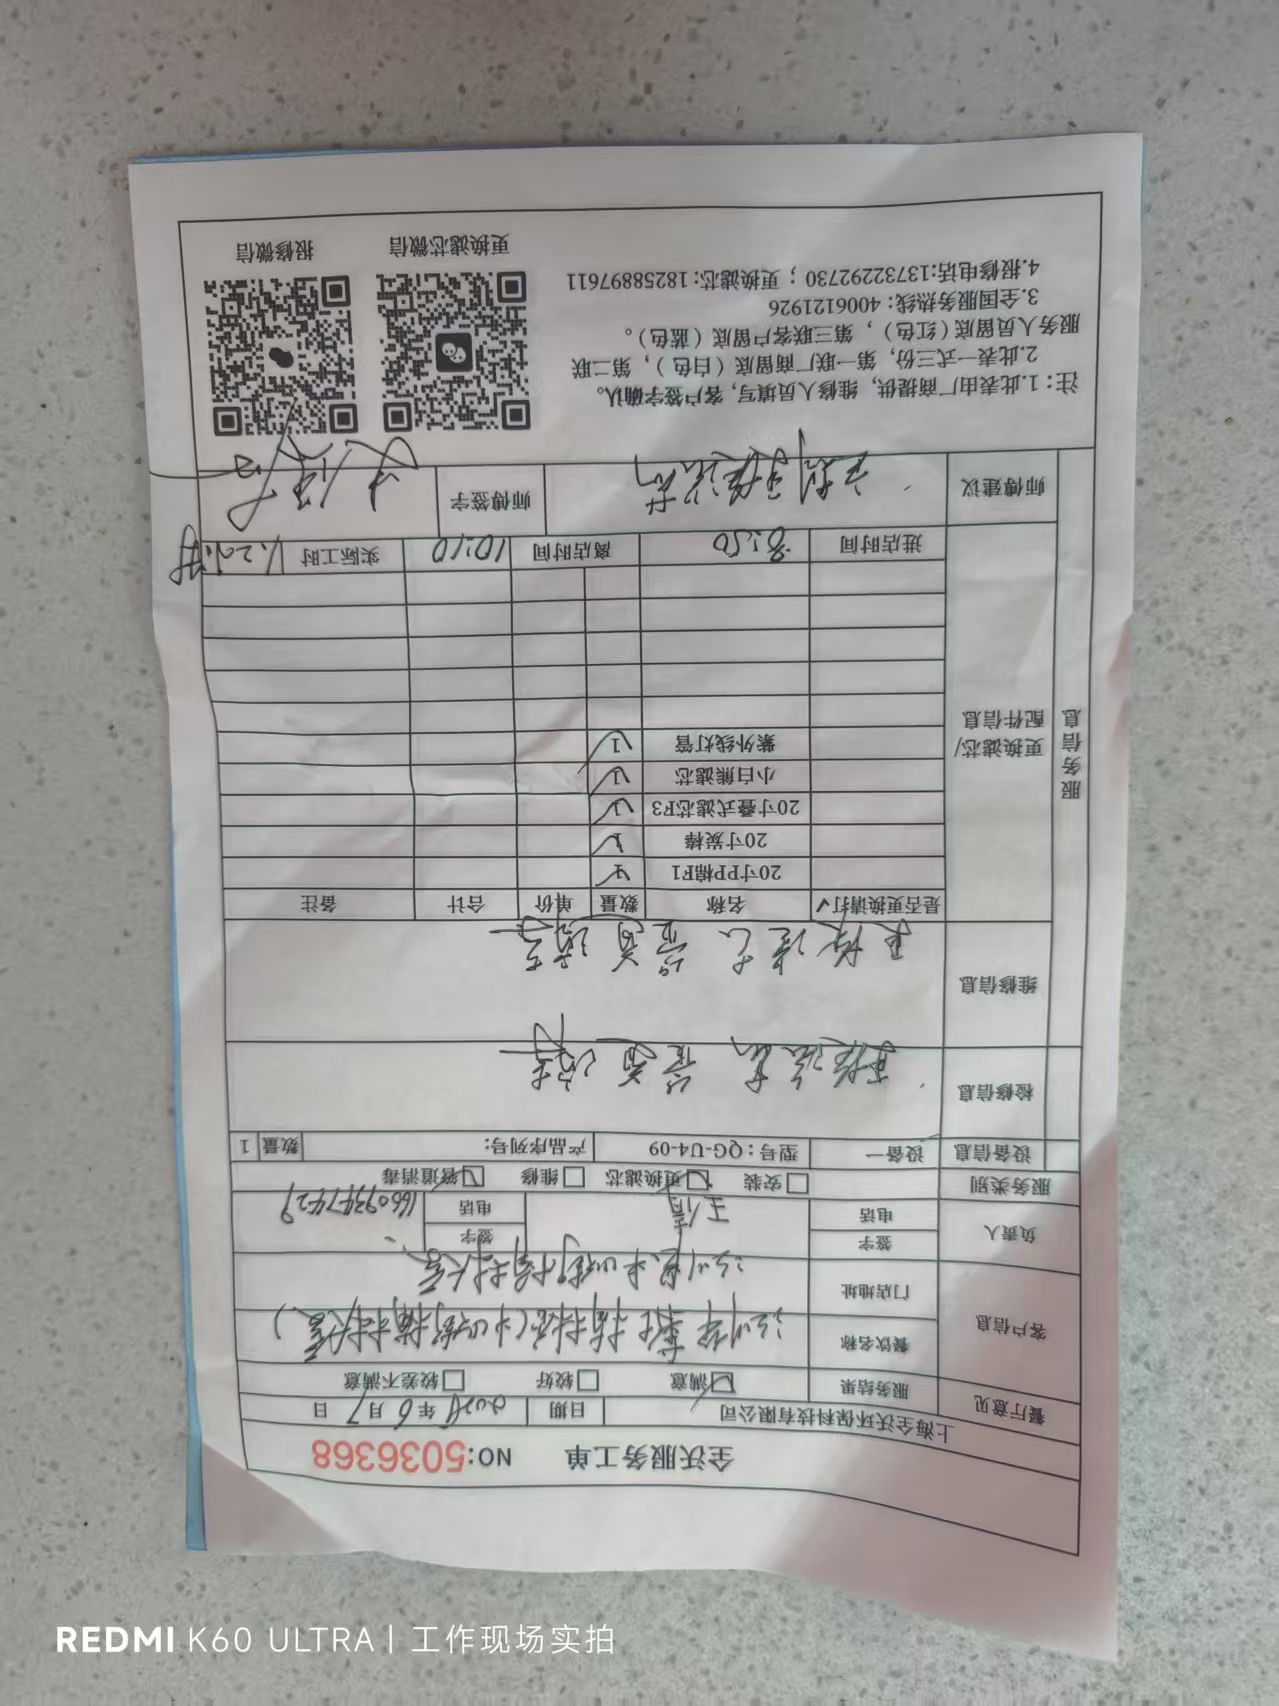 全沃服务工单 NO:5036368
上海全沃环保科技有限公司 日期 2024年6月7日
餐厅意见 服务结果 ☑满意 □较好 □较差不满意
客户信息 餐饮名称
门店地址
负责人 签字 王倩 签字
电话 电话 16609347429
服务类别 □安装 ☑更换滤芯 □维修 ☑管道消毒
设备信息 设备一 型号：QG-U4-09 产品序列号： 数量 1
检修信息
服务信息 维修信息
更换滤芯/配件信息
是否更换请打✓ 名称 数量 单价 合计 备注
20寸PP棉F1 1
20寸炭棒 1
20寸叠式滤芯F3 1
小白熊滤芯 1
紫外线灯管 1
进店时间 8:50 离店时间 10:10 实际工时 1.20
师傅建议 师傅签字
注：1.此表由厂商提供，维修人员填写，客户签字确认。
2.此表一式三份，第一联厂商留底（白色），第二联
服务人员留底（红色），第三联客户留底（蓝色）。
3.全国服务热线：4006121926
4.报修电话:13732292730；更换滤芯：18258897611
更换滤芯微信 报修微信
REDMI K60 ULTRA | 工作现场实拍